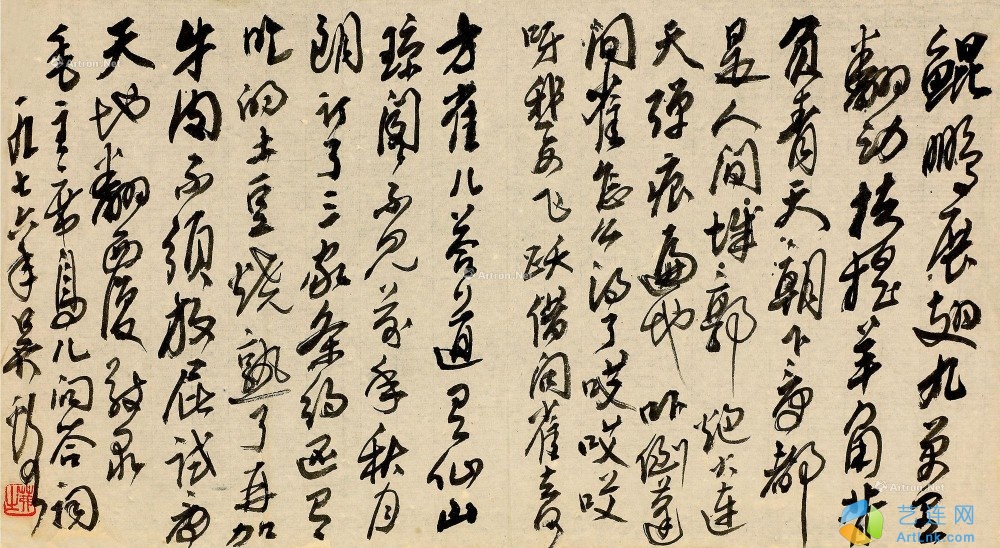 鲲鹏展翅九万里
翻动扶摇羊角背
负青天朝下看都
是人间城郭炮火连
天弹痕遍地吓倒蓬
间雀怎么得了哎哎哎
呀我要飞跃借问雀去何
方雀儿答道有仙山
琼阁不见前年秋月
朗订了三家条约还有
吃的土豆烧熟了再加
牛肉不须放屁试看
天地翻覆敬录
毛主席鸟儿问答词
一九七六年吴
Artron.Net
Artron.Net
Artron.Net
Artron.Net
艺连网
ArtLnk.com